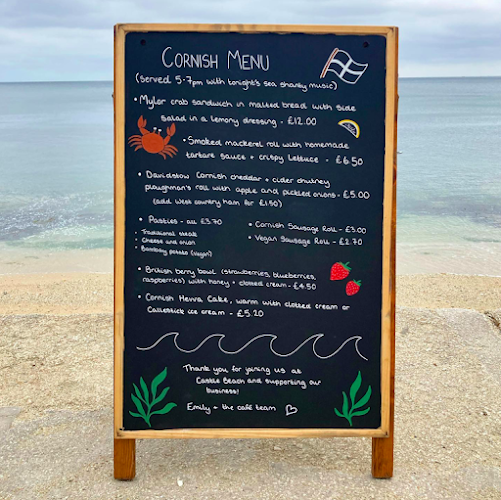 CORNISH MENU
(served 5-7pm with tonight's sea shanty music)
• Mylor crab sandwich in malted bread with side
salad in a lemony dressing - £12.00
• Smoked mackerel roll with homemade
tartare sauce + crispy lettuce - £6.50
• Davidstow Cornish cheddar + cider chutney
ploughman's roll with apple and pickled onions - £5.00
(add West country ham for £1.50)
• Pasties - all £3.70
• Traditional steak
• Cheese and onion
• Bombay potato (vegan)
• Cornish Sausage Roll - £3.00
• Vegan Sausage Roll - £2.70
• British berry bowl (strawberries, blueberries,
raspberries) with honey + clotted cream - £4.50
• Cornish Hevva Cake, warm with clotted cream or
Callestick ice cream - £5.20
Thank you for joining us at
Castle Beach and supporting our
business!
Emily + the café team